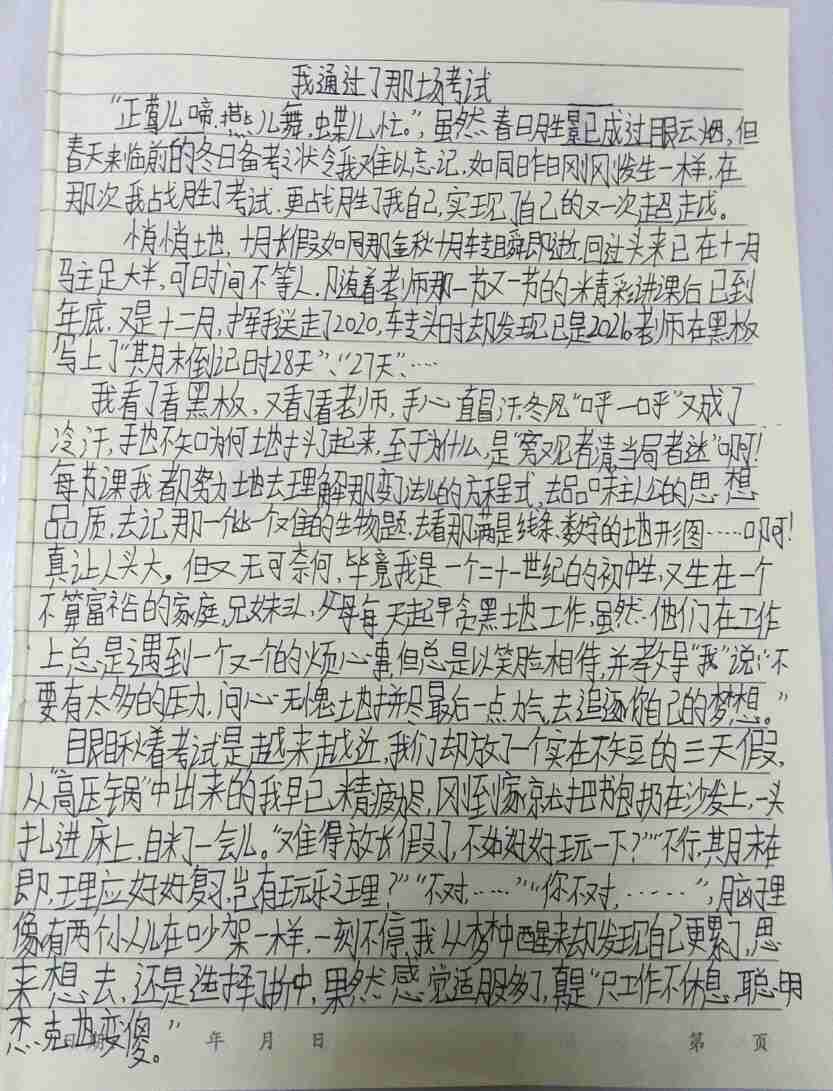 我通过了那场考试
“正莺儿啼,燕儿舞,蝶儿忙。”,虽然春日胜景已成过眼云烟,但
春天来临前的冬日备考之状令我难以忘记,如同昨日刚刚发生一样,在
那次我战胜了考试,更战胜了我自己,实现了自己的又一次超越。
悄悄地,十月长假如同那金秋十月转瞬即逝,回过头来已在十一月
驻足大半,可时间不等人,随着老师那一节又一节的精彩讲课后已到
年底,又是十二月,挥手送走了2020,转头时却发现已是2021。老师在黑板
写上了“期末倒记时28天”、“27天”……
我看了看黑板,又看了看老师,手心直冒汗,冬风“呼—呼”又成了
冷汗,手也不知为何地抖了起来,至于为什么,是“旁观者清,当局者迷”啊!
每节课我都努力地去理解那变了法儿的方程式,去品味主人公的思想
品质,去记那一个比一个难的生物题,去看那满是线条、数字的地形图……啊!
真让人头大。但又无可奈何,毕竟我是一个二十一世纪的初中生,又生在一个
不算富裕的家庭,兄妹三人,父母每天起早贪黑地工作,虽然他们在工作
上总是遇到一个又一个的烦心事,但总是以笑脸相待,并教导“我”说:“不
要有太多的压力,问心无愧地拼尽最后一点力气,去追逐你自己的梦想。”
眼瞅着考试是越来越近,我们却放了一个实在不短的三天假,
从“高压锅”中出来的我早已精疲力尽,刚到家就把书包扔在沙发上,一头
扎进床上,眯了一会儿。“难得放长假了,不如好好玩一下?”“不行,期末在
即,理应好好复习,岂有玩乐之理?”“不对,……”“你不对,……”,脑子里
像有两个小人儿在吵架一样,一刻不停,我从梦中醒来却发现自己更累了,思
来想去,还是选择了折中,果然感觉适服多了,真是“只工作不休息,聪明
杰克也变傻。”
年 月 日 第 页